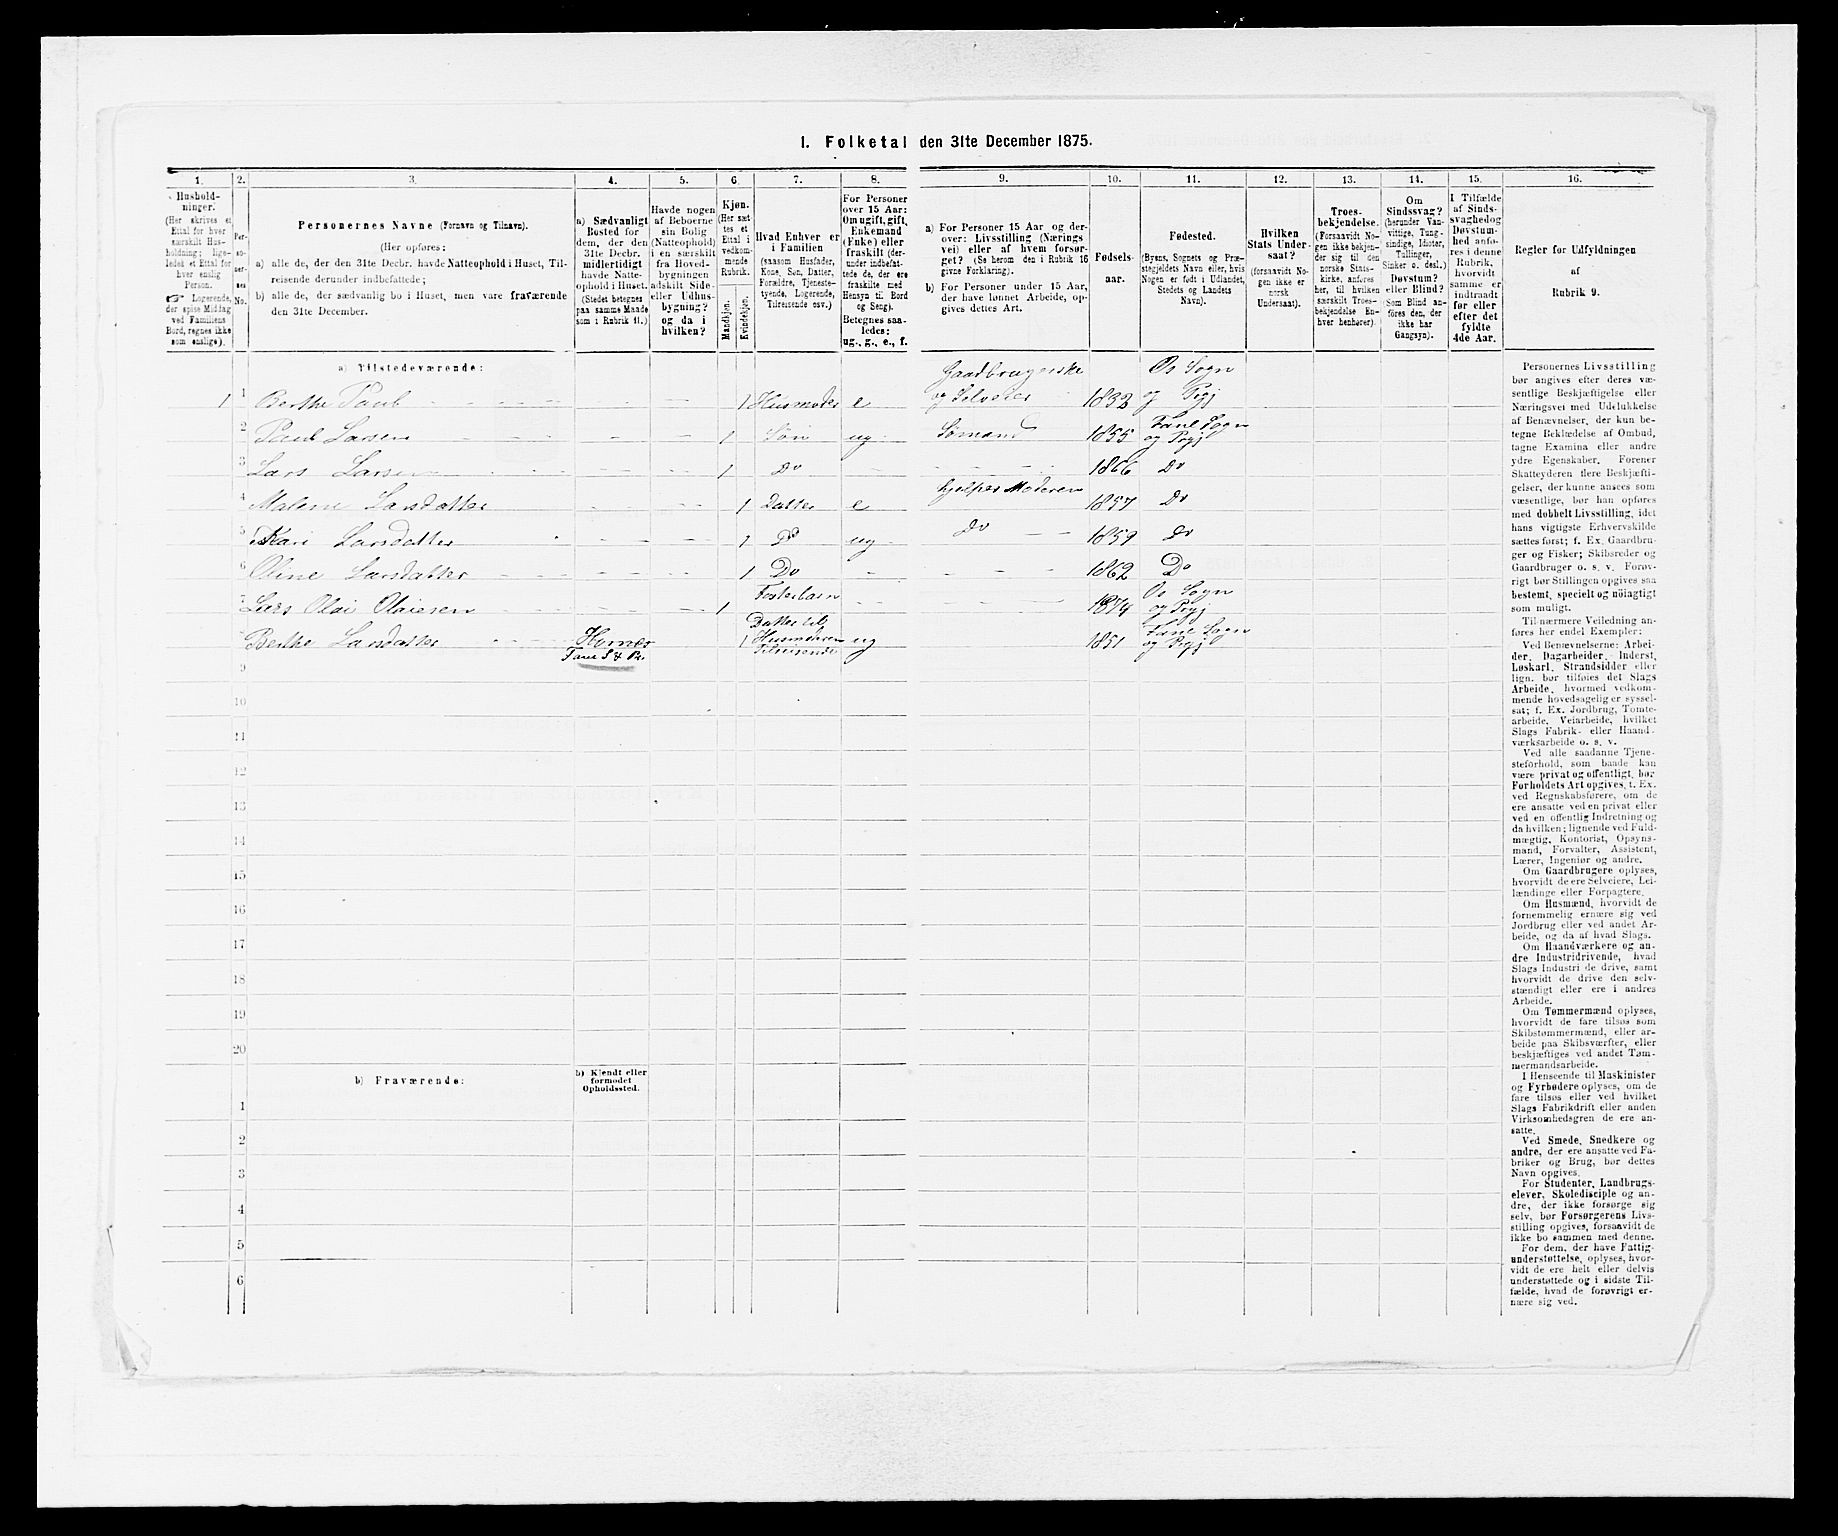 1. Folketal den 31te December 1875.
1. 2. 3. 4. 5. 6. 7. 8. 9. 10. 11. 12. 13. 14. 15. 16.
Hushold-
ninger.
(Her skrives et
Ettal for hver
særskilt Hus-
holdning; lige-
ledes et Ettal for
hver enslig
Person.
☞ Logerende,
der spise Middag
ved Familiens
Bord, regnes ikke
som enslige).
Per-
so-
ner-
nes
No.
Personernes Navne (Fornavn og Tilnavn).
(Her opføres:
a) alle de, der den 31te Decbr. havde Natteophold i Huset, Til-
reisende derunder indbefattede;
b) alle de, der sædvanlig bo i Huset, men vare fraværende
den 31te December.
a) Sædvanligt
Bosted for
dem, der den
31te Decbr.
midlertidigt
havde Natte-
ophold i Huset.
(Stedet betegnes
paa samme Maade
som i Rubrik 11.)
Havde nogen
af Beboerne
sin Bolig
(Natteophold)
i en særskilt
fra Hoved-
bygningen
adskilt Side-
eller Udhus-
bygning?
og da i
hvilken?
Kjøn.
(Her sæt-
tes et
Ettal i
vedkom-
mende
Rubrik.
Mandkjøn.
Kvindekjøn.
Hvad Enhver er
i Familien
(saasom Husfader,
Kone, Søn, Datter,
Forældre, Tjeneste-
tyende, Logerende,
Tilreisende osv.)
For Personer
over 15 Aar:
Om ugift, gift,
Enkemand
(Enke) eller
fraskilt (der-
under indbefat-
tede de, der ere
fraskilte med
Hensyn til Bord
og Seng).
Betegnes saa-
ledes:
ug., g., e., f.
a) For Personer 15 Aar og der-
over: Livsstilling (Nærings
vei) eller af hvem forsør-
get? (Se herom den i Rubrik 16
givne Forklaring).
b) For Personer under 15 Aar,
der have lønnet Arbeide, op-
gives dettes Art.
Fødsels-
aar.
Fødested.
(Byens, Sognets og Præ-
stegjeldets Navn eller, hvis
Nogen er født i Udlandet,
Stedets og Landets
Navn).
Hvilken
Stats Under-
saat?
(forsaavidt No-
gen ikke er
norsk
Undersaat).
Troes-
bekjendelse.
(Forsaavidt No-
gen ikke bekjen-
der sig til den
norske Stats-
kirke, anføres
her, til hvilken
særskilt Troes-
bekjendelse En-
hver henhører).
Om
Sindssvag?
(herunder Van-
vittige, Tung-
sindige, Idioter,
Tullinger,
Sinker o. desl.)
Døvstum?
eller Blind?
(Som Blind an-
føres den, der
ikke har
Gangsyn).
I Tilfælde
af Sinds-
svaghed og
Døvstum-
hed anfø-
res i denne
Rubrik,
hvorvidt
samme er
indtraadt
før eller
efter det
fyldte
4de Aar.
Regler for Udfyldningen
af
Rubrik 9.
a) Tilstedeværende:
Gaardbrugerske Os Sogn
1 1 Berthe Paul 1 Husmoder e og Selveier 1832 og Prgj
2 Paul Larsen 1 Søn ug Sømand 1855 Fane Sogn og Prgj
3 Lars Larsen 1 Do 1866 Do
4 Malene Larsdatter 1 Datter e hjelper Moderen 1857 Do
5 Kari Larsdatter 1 Do ug do 1859 do
6 Oline Larsdatter 1 Do 1862 Do
7 Lars Olai Olaisen 1 Fosterbarn 1874 Os Sogn og Prgj
Berthe Larsdatter 1 Datter til Husmoderen Tilreisende ug 1851 Fane Sogn og Prgj
Fane S & Pr.
9
10
11
12
13
14
15
16
17
18
19
20
b) Fraværende:
b) Kjendt eller
formodet
Opholdssted.
1
2
3
4
5
6
Personernes Livsstilling
bør angives efter deres væ-
sentlige Beskjæftigelse eller
Næringsvei med Udelukkelse
af Benævnelser, der kun be-
tegne Beklædelse af Ombud,
tagne Examina eller andre
ydre Egenskaber. Forener
Skatteyderen flere Beskjæfti-
gelser, der kunne ansees som
væsentlige, bør han opføres
med dobbelt Livsstilling, idet
hans vigtigste Erhvervskilde
sættes først; f. Ex. Gaardbru-
ger og Fisker; Skibsreder og
Gaardbruger o. s. v. Forøv-
rigt bør Stillingen opgives saa
bestemt, specielt og nøiagtigt
som muligt.
Til nærmere Veiledning an-
føres her endel Exempler:
Ved Benævnelserne: Arbei-
der, Dagarbeider, Inderst,
Løskarl, Strandsidder eller
lign. bør tilføies det Slags
Arbeide, hvormed vedkom-
mende hovedsagelig er syssel-
sat; f. Ex. Jordbrug, Tomte-
arbeide, Veiarbeide, hvilket
Slags Fabrik- eller Haand-
værksarbeide o. s. v.
Ved alle saadanne Tjene-
steforhold, som baade kan
være privat og offentligt, bør
Forholdets Art opgives, t. Ex.
ved Regnskabsførere, om de
ere ansatte ved en privat eller
ved en offentlig Indretning og
da hvilken; lignende ved Fuld-
mægtig, Kontorist, Opsyns-
mand, Forvalter, Assistent,
Lærer, Ingeniør og andre.
Om Gaardbrugere oplyses,
hvorvidt de ere Selveiere, Lei-
lændinge eller Forpagtere.
Om Husmænd, hvorvidt de
fornemmelig ernære sig ved
Jordbrug eller ved andet Ar-
beide, og da af hvad Slags.
Om Haandværkere og an-
dre Industridrivende, hvad
Slags Industri de drive, samt
hvorvidt de drive den selv-
stændigt eller ere i andres
Arbeide.
Om Tømmermænd oplyses,
hvorvidt de fare tilsøs som
Skibstømmermænd, eller ar-
beide paa Skibsværfter, eller
beskjæftiges ved andet Tøm-
mermandsarbeide.
I Henseende til Maskinister
og Fyrbødere oplyses, om de
fare tilsøs eller ved hvilket
Slags Fabrikdrift eller anden
Virksomhedsgren de ere an-
satte.
Ved Smede, Snedkere og
andre, der ere ansatte ved Fa-
briker og Brug, bør dettes
Navn opgives.
For Studenter, Landbrugs-
elever, Skoledisciple og an-
dre, der ikke forsørge sig
selv, bør Forsørgerens Livs-
stilling opgives, forsaavidt de
ikke bo sammen med denne.
For dem, der have Fattig-
understøttelse, oplyses, hvor-
vidt de ere helt eller delvis
understøttede og i sidste Til-
fælde, hvad de forøvrigt er-
nære sig ved.